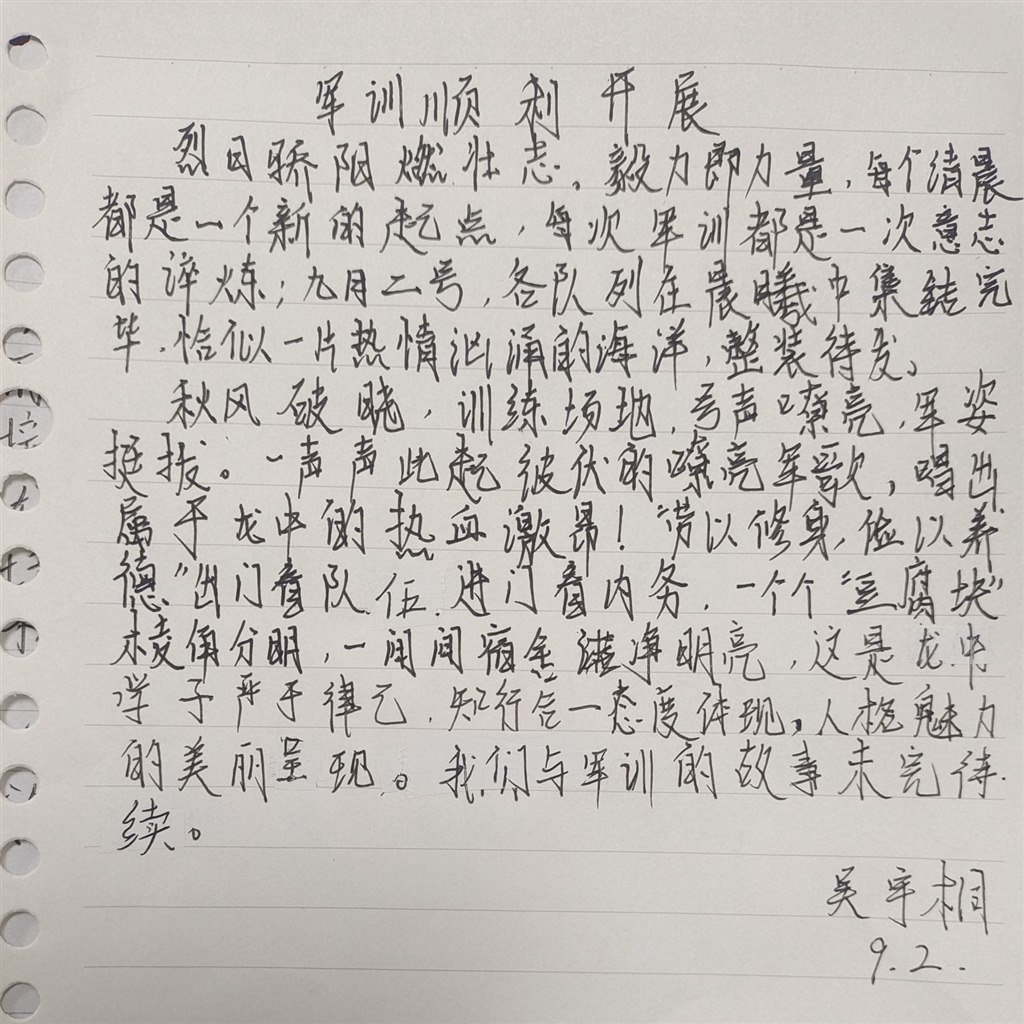 军训顺利开展
烈日骄阳燃壮志。毅力即力量,每个清晨
都是一个新的起点,每次军训都是一次意志
的淬炼;九月二号,各队列在晨曦中集结完
毕.恰似一片热情汹涌的海洋,整装待发。
秋风破晓,训练场地,号声嘹亮,军姿
挺拔。一声声此起彼伏的嘹亮军歌,唱出
属于龙中的热血激昂!“劳以修身,俭以养
德”出门看队伍.进门看内务,一个个“豆腐块”
棱角分明,一间间宿舍洁净明亮,这是龙中
学子严于律己.知行合一态度体现,人格魅力
的美丽呈现。我们与军训的故事未完待
续。
吴宇相
9.2.